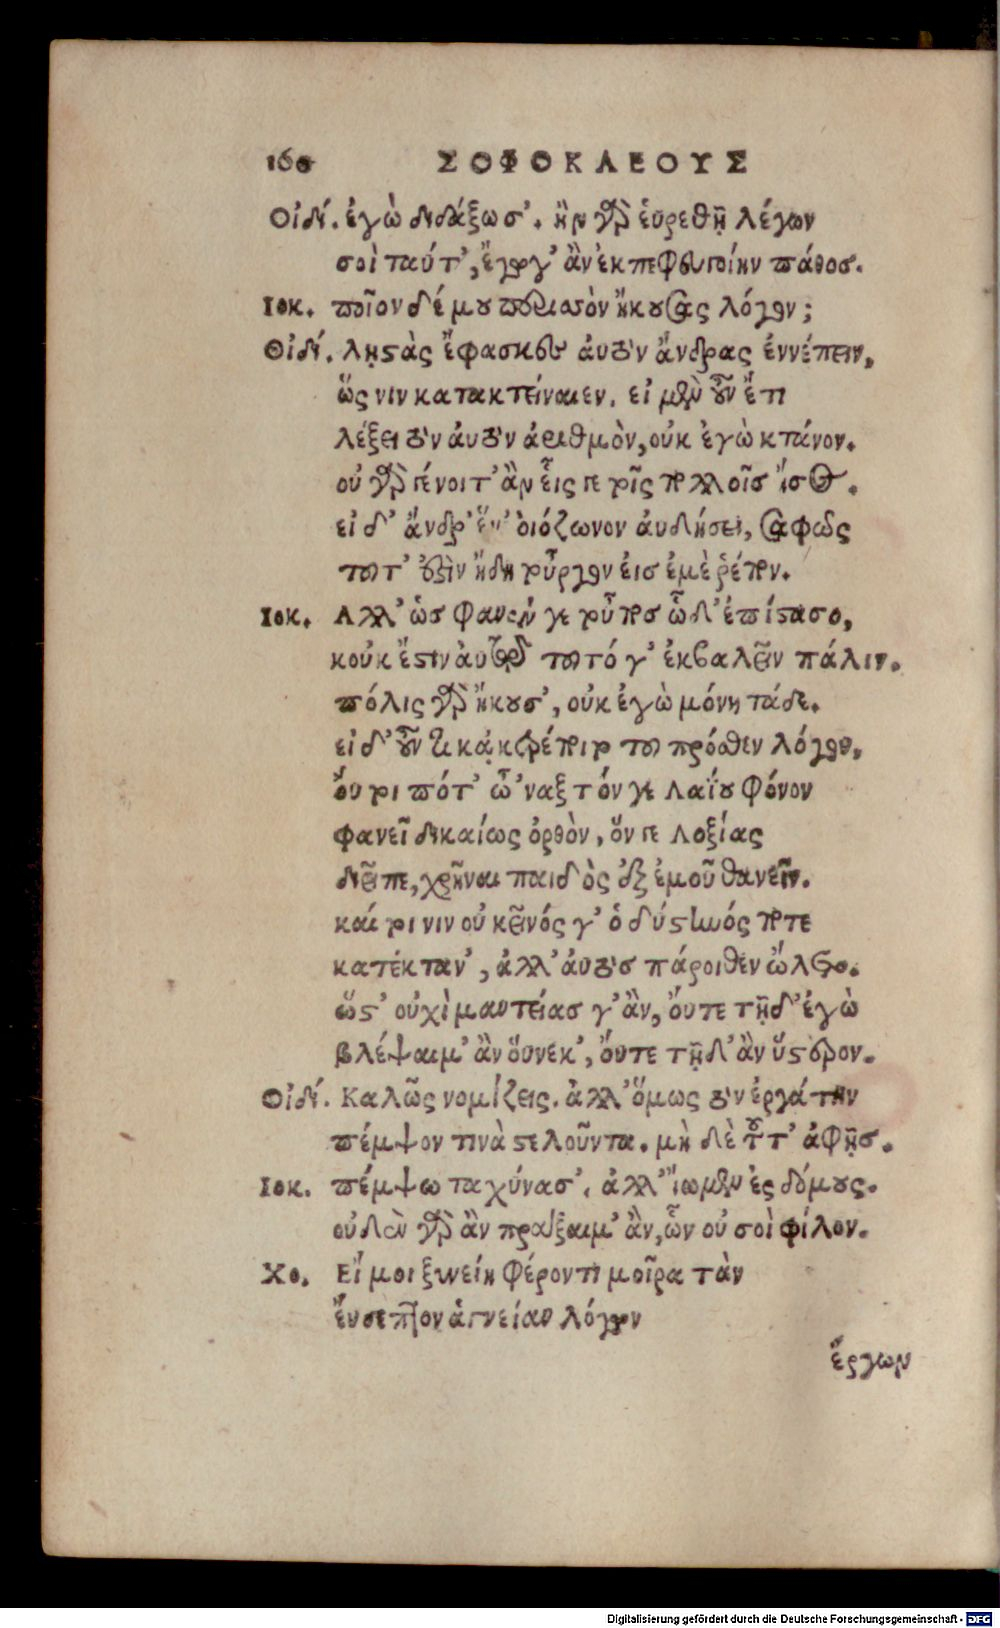 160 ΣΟΦΟΚΛΕΟΥΣ
Οἰδί. ἐγὼ διδάξω σ’. ἢν γὰρ εὑρεθῇ λέγων
σοὶ ταύτ’, ἔγωγ’ ἂν ἐκπεφευγοίην πάθοσ.
Ιοκ. ποῖον δέ μου περισσὸν ἤκουσας λόγον;
Οἰδί. λῃστὰς ἔφασκες ἀυτὸν ἄνδρας ἐννέπειν,
ὥς νιν κατακτείναιεν. εἰ μὲν οὖν ἔτι
λέξει τὸν ἀυτὸν ἀριθμὸν, οὐκ ἐγὼ κτάνον.
οὐ γὰρ γένοιτ’ ἂν εἷς γε τοῖς πολλοῖσ ἴσος.
εἰ δ’ ἄνδρ’ ἕν’ ὀιόζωνον ἀυδήσει, σαφῶς
τοῦτ’ ἐστὶν ἤδη τοὖργον εἰσ ἐμὲ ῥέπον.
Ιοκ. Αλλ’ ὡσ φανέν γε τοὖποσ ὧδ’ ἐπίστασο,
κοὐκ ἔστιν ἀυτῷ τοῦτό γ’ ἐκβαλεῖν πάλιν.
πόλις γὰρ ἤκουσ’, οὐκ ἐγὼ μόνη τάδε.
εἰ δ’ οὖν τι κᾀκτρέποιτο τοῦ πρόσθεν λόγου,
ὄυτοι πότ’ ὦ ’ναξ τόν γε Λαΐου φόνον
φανεῖ δικαίως ὀρθὸν, ὅν γε Λοξίας
διεῖπε, χρῆναι παιδὸς ἐξ ἐμοῦ θανεῖν.
καί τοι νιν οὐ κεῖνός γ’ ὁ δύστηνός ποτε
κατέκταν’, ἀλλ’ ἀυτὸσ πάροιθεν ὤλετο.
ὥστ’ οὐχὶ μαντείασ γ’ ἂν, ὄυτε τῇδ’ ἐγὼ
βλέψαιμ’ ἂν ὅυνεκ’, ὄυτε τῇδ’ ἂν ὕστερον.
Οἰδί. Καλῶς νομίζεις. ἀλλ’ ὅμως τὸν ἐργάτην
πέμψον τινὰ στελοῦντα. μὴ δὲ τοῦτ’ ἀφῇσ.
Ιοκ. πέμψω ταχύνασ’. ἀλλ’ ἴωμεν ἐς δόμους.
οὐδὲν γὰρ ἂν πράξαιμ’ ἂν, ὧν οὐ σοὶ φίλον.
Χο. Εἴ μοι ξυνείη φέροντι μοῖρα τὰν
ἔυσεπτον ἁγνείαν λόγων
ἔργων
Digitalisierung gefördert durch die Deutsche Forschungsgemeinschaft - DFG